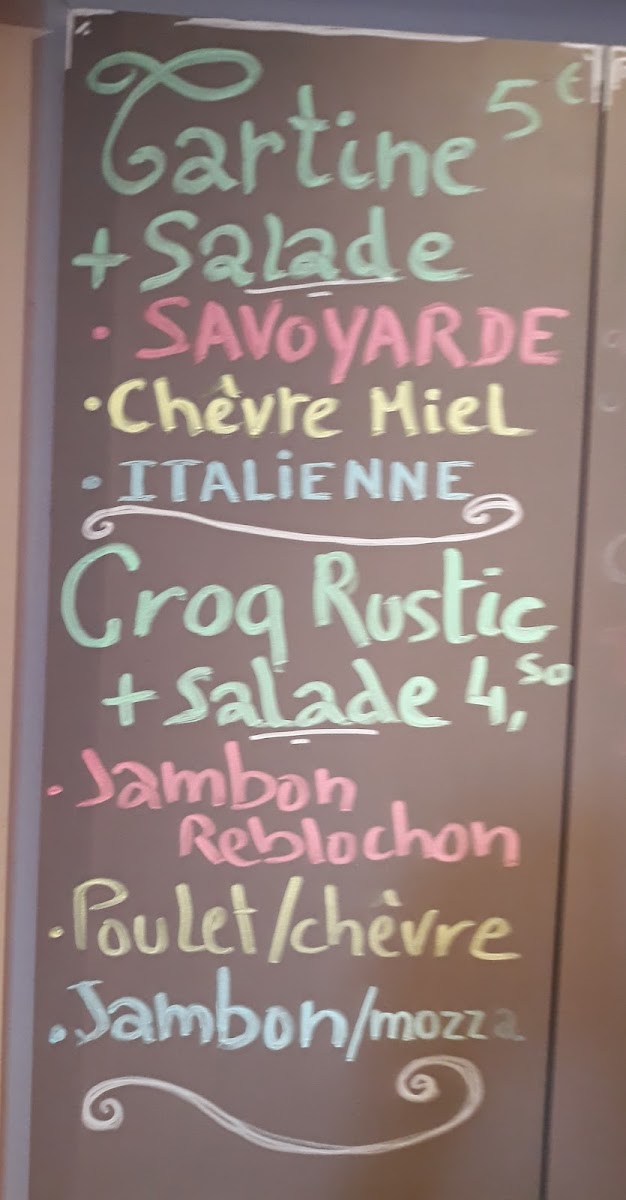 Tartine 5€
+ Salade
• SAVOYARDE
• Chèvre Miel
• ITALiENNE
Croq Rustic
+ Salade 4,50
• Jambon
Reblochon
• Poulet/chèvre
• Jambon/mozza